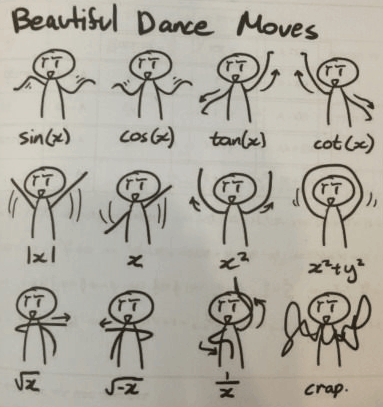 Beautiful Dance Moves
sin(x) cos(x) tan(x) cot(x)
|x| x x² x²+y²
√x √-x 1/x crap.